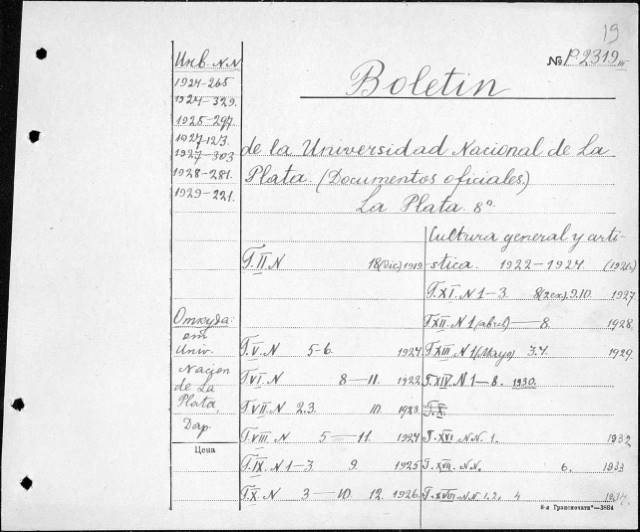 19
№ P.2319 IV
Инв. N.N
1924-265
1924-329.
1925-297.
1927-123.
1927-303
1928-281.
1929-221.
Boletin
de la Universidad Nacional de La
Plata. (Documentos oficiales.)
La Plata. 8º.
T.II.N 18(dic) 1919
T.V.N 5-6. 1921
T.VI.N 8—11. 1922
T.VII.N 2.3. 10. 1923
T.VIII.N 5—11. 1924
T.IX.N 1-3. 9. 1925
T.X.N 3—10. 12. 1926
Cultura general y arti-
stica. 1922—1924. (1926)
T.XI.N 1-3. 8(2ex.).9.10. 1927
T.XII.N 1(abril)—8. 1928
T.XIII N 1(Mayo) 3.4. 1929
T.XIV N 1—8. 1930.
T.X
T.XVI N.N. 1. 1932
T.XVII. N.N. 6. 1933
T.XVIII N.N. 1.2. 4 1934
Откуда:
Univ.
Nacion
de La
Plata,
Дар.
Цена
8-я Гранспечать"—3884